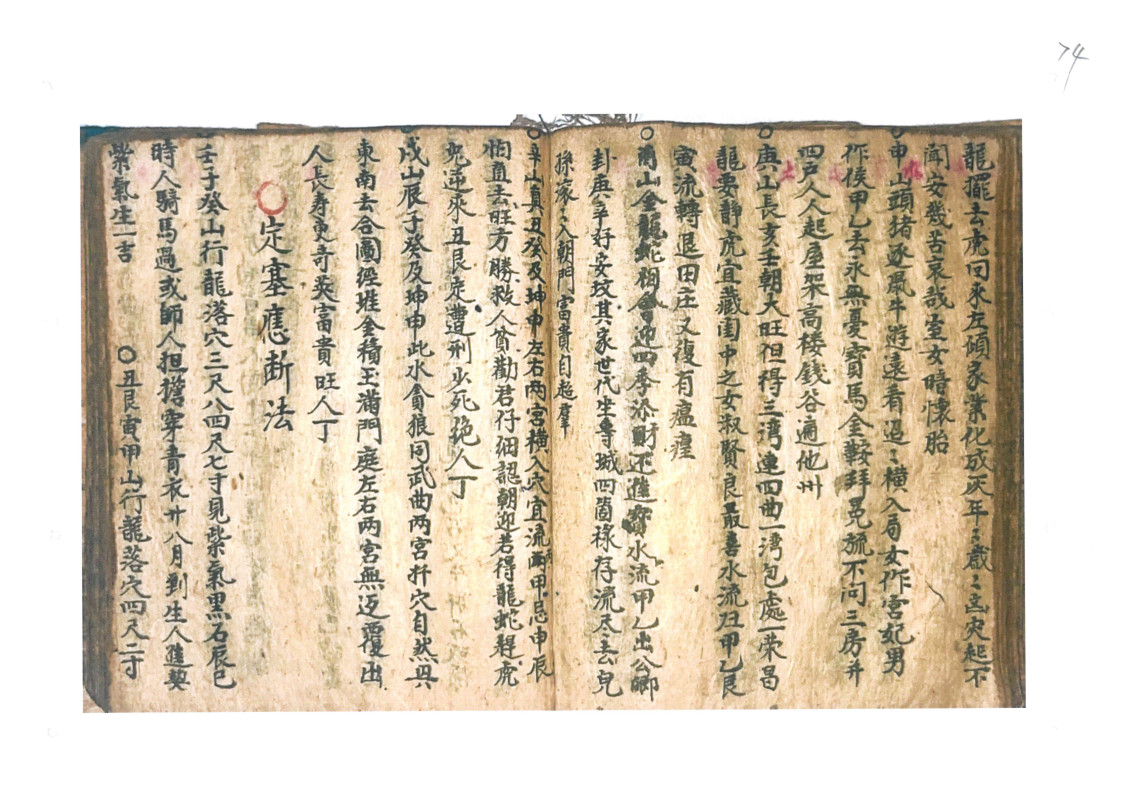 74
龍擺去虎回來左傾家業化成灰年〻歲〻凶灾起不
聞安幾苦哀哉室女暗懷胎
○申山頭猪逐鳳牛游遠看過〻橫入局女作宮妃男
作侯甲乙去永無憂寳馬金鞍拜冕旒不問三房并
四戸人人起屋架高楼錢谷遍他州
○庚山長亥壬朝大旺但得三湾連四曲一湾包處一荣昌
龍要静虎宜藏闺中之女淑賢良最喜水流丑甲乙艮
寅流轉退田庄又復有瘟瘽
○酉山金龍蛇相會迎四季添財还進寳水流甲乙出公卿
卦庚辛好安坟其家世代坐専城四箇禄存流尽去兒
孫家〻入朝門富貴自起羣
○辛山真丑癸及坤申左右两宮横入穴宜流丙甲忌申辰
怕直去旺方勝救人貧勸君仔细認朝迎若得龍蛇趕虎
兜逆來丑艮走遭刑少死绝人丁
○戌山辰子癸及坤申此水貪狼同武曲两宮扦穴自然興
東南去合圖經堆金積玉滿門庭左右两宮無迈覆出
人長寿更奇英富貴旺人丁
○定塞應断法
○壬子癸山行龍落穴三尺八四尺七寸見紫氣黒石辰巳
時人騎馬過或師人担擔穿青衣廿八月到生人進契
紫氣生一吉 ○丑艮寅甲山行龍落穴四尺二寸